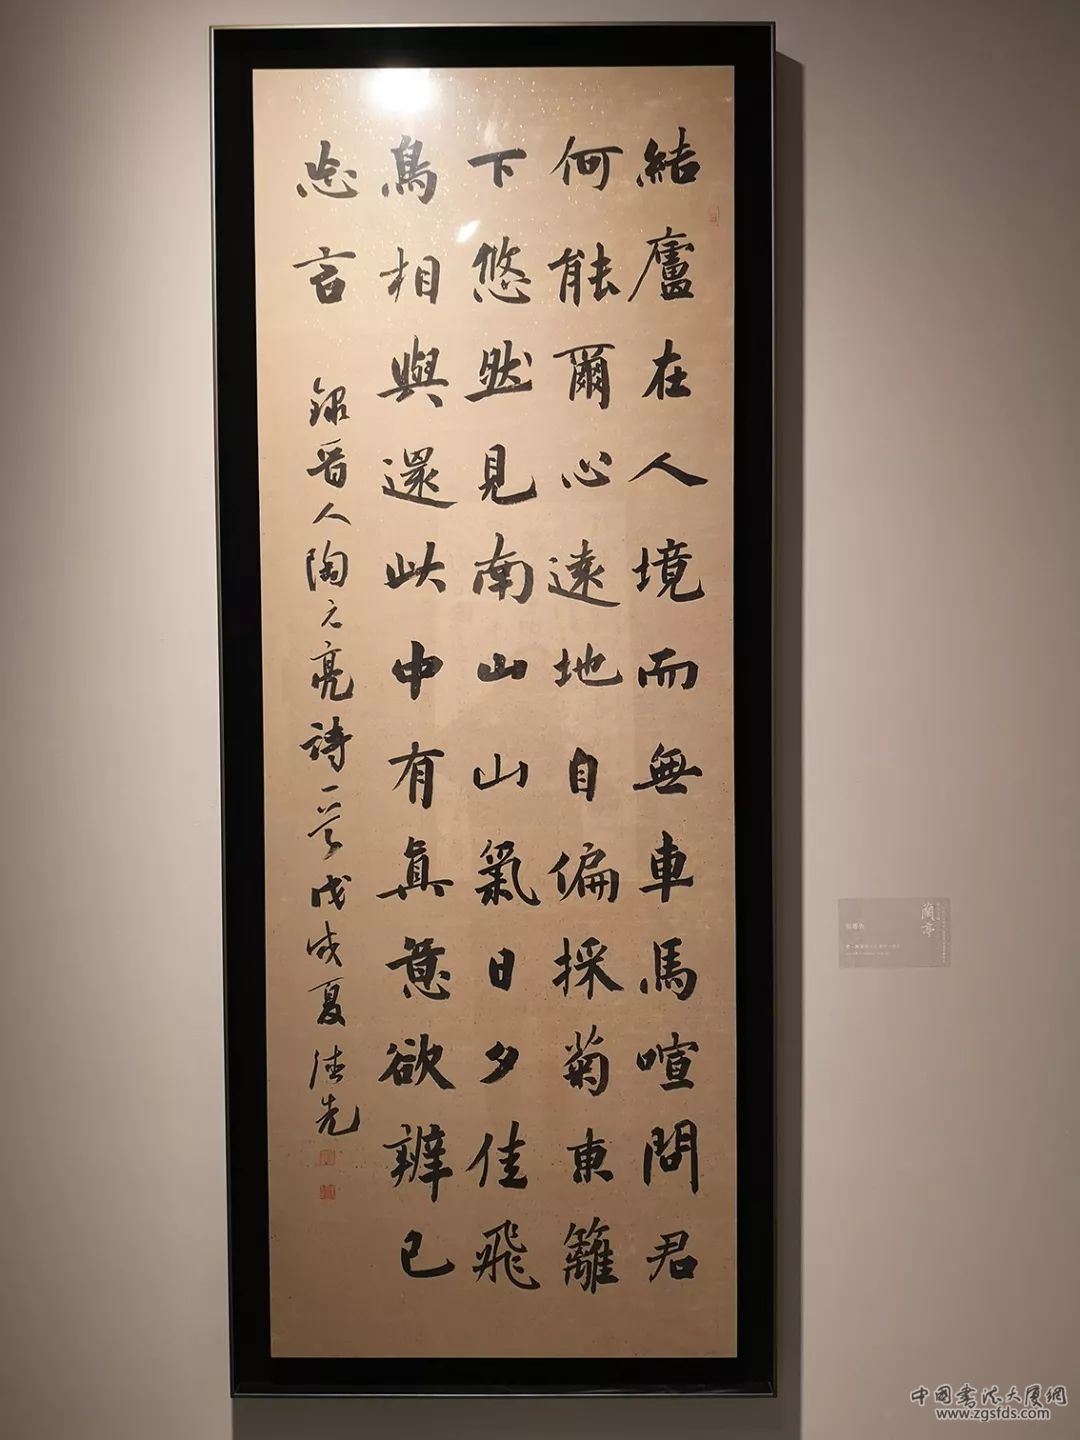 結廬在人境而無車馬喧問君
何能爾心遠地自偏採菊東籬
下悠然見南山山氣日夕佳飛
鳥相與還此中有真意欲辨已
忘言
錄晉人陶元亮詩一首戊戌夏德先
蘭亭
中国书法大厦網
www.zgsfds.com